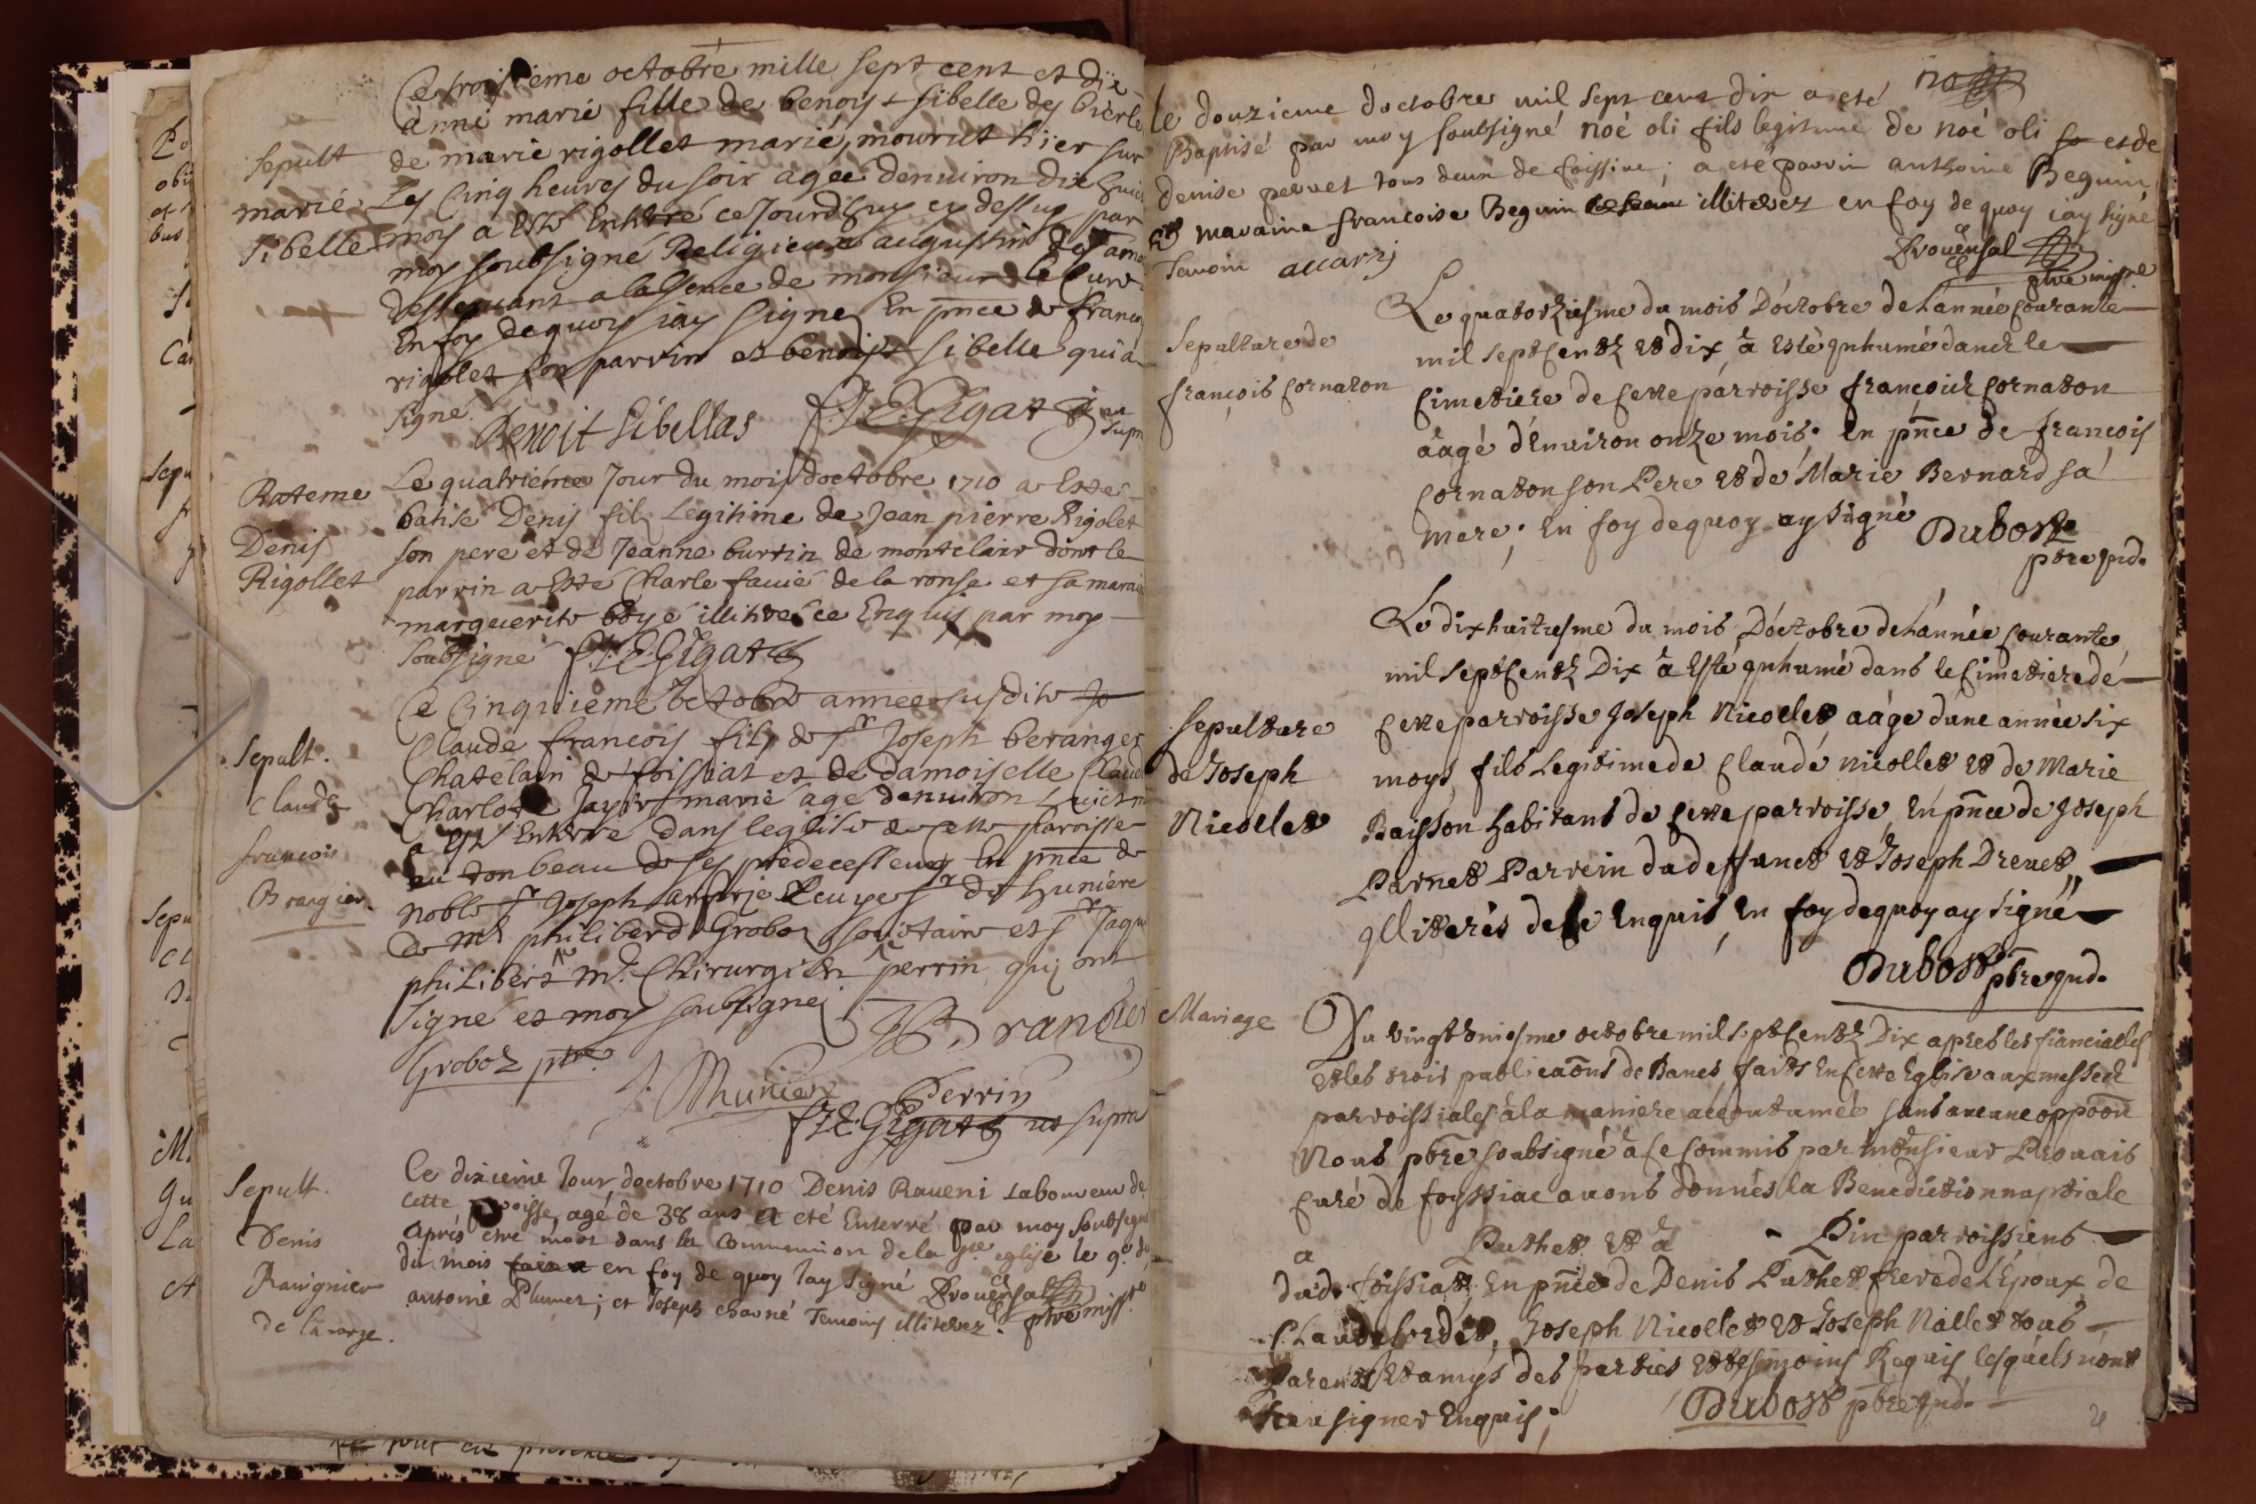 Ce troisieme octobre mille sept cent et dix
anne marie fille de benoist sibelle des bierle
Sepult
de marie rigollet marié, mourut hier sur
Les Cinq heures du soir agée denuiron dix huict
marie
mois a Esté Enterré ce Jourdhuy cy dessus par
sibelle
moy soubsigné Religieux augustin
desseruant a labsence de monsieur le Curé
En foy dequoy jay signé En pnce de francois
rigolet son parrin et benoist sibelle qui a
signé.
Benoit Sibellas f. E. Gigat ut supra
Bateme
Denis
Rigollet
Le quatriéme Jour du mois doctobre 1710 a Esté
batisé Denis fils Legitime de Jean pierre Rigolet
son pere et de Jeanne burtin de montclair dont le
parrin a Esté Charle fauié de la ronse et sa marai
marguerite boyé illitrés ce Enquis par moy
soubsigné f. E. Gigat
Sepult.
Claude
francois
Brangier
Ce Cinquieme octobre année susdite
Claude francois fils de sr Joseph beranger
Chatelain de foissiat et de damoiselle Claud
Charlote Jayr marié agé denuiron
a Esté Enterré dans leglise de cette paroisse
au tonbeau de ses predecesseurs En pnce de
noble sr Joseph Ecuyer sr de hunière
de Mr philiberd Groboz et sr Jaque
philibert Me Chirurgien perrin qui ont
signé et moy soubsigné
JB. Brangier
Groboz ptre
J. Munier
Perrin
f. E. Gigat ut supra
Sepult.
Denis
Ravignier
de la
Ce dixieme Jour doctobre 1710 Denis Raveni Laboureur de
cette paroisse, agé de 38 ans a eté Enterré par moy soubsigné
après etre mort dans la communion de la ste eglise le 9e du
du mois en foy de quoy Jay signé Prouensal
antoine Plumez; et Joseph chavné Temoins illiterez. ptre missre
le douzieme doctobre mil sept cent dix a eté
Baptisé par moy soubsigné Noé oli fils legitime de Noé oli et de
denise perret tous deux de foissia; a eté parrin anthoine Beguin
et maraine francoise Beguin illiterez en foy de quoy iay signé
Temoin accarry
Prouensal
ptre missre
Sepulture de
françois Cornaton
Le quatorziesme du mois D'octobre de l'année Courante
mil septCentz et dix à Esté ynhumé dans le
Cimetiere de Cette parroisse françois Cornaton
aàgé d'Enuiron onze mois. En pnce de francois
Cornaton son Pere et de Marie Bernard sa
Mere; En foy dequoy ay signé
Dubost
pbre yud.
Sepulture
de Joseph
Nicollet
Le dixhuitiesme du mois D'octobre de l'année Courante
mil septCentz Dix à Esté ynhumé dans le Cimetiere de
Cette parroisse Joseph Nicollet aàgé d'une année six
moys, fils Legitime de Claude nicollet et de Marie
Baisson habitans de Cette parroisse, En pnce de Joseph
Parnet Parrein du deffunct et Joseph Dreuet,
yllitérés de Ce Enquis, En foy dequoy ay signé
Dubost pbre yud.
Mariage
Du vingt uniesme octobre mil septCentz Dix apres les fianciailles
et les trois publicaons de Bancs faits En Cette Eglise aux messes
parroissiales à la maniere accoutumée sans aucune oppoon
Nous pbre soubsigné à Ce Commis par Monsieur Prouais
Curé de foyssiac auons donnés la Benediction nuptiale
a Puthet et à Pin parroissiens
dud. foissiat En pnce de Denis Puthet frere de L'Epoux, de
Claude Joseph Nicollet et Joseph Nallet tous
Parents et amys des parties et tesmoins Requis lesquels n'ont
sceu signer Enquis;
Dubost pbre yud.